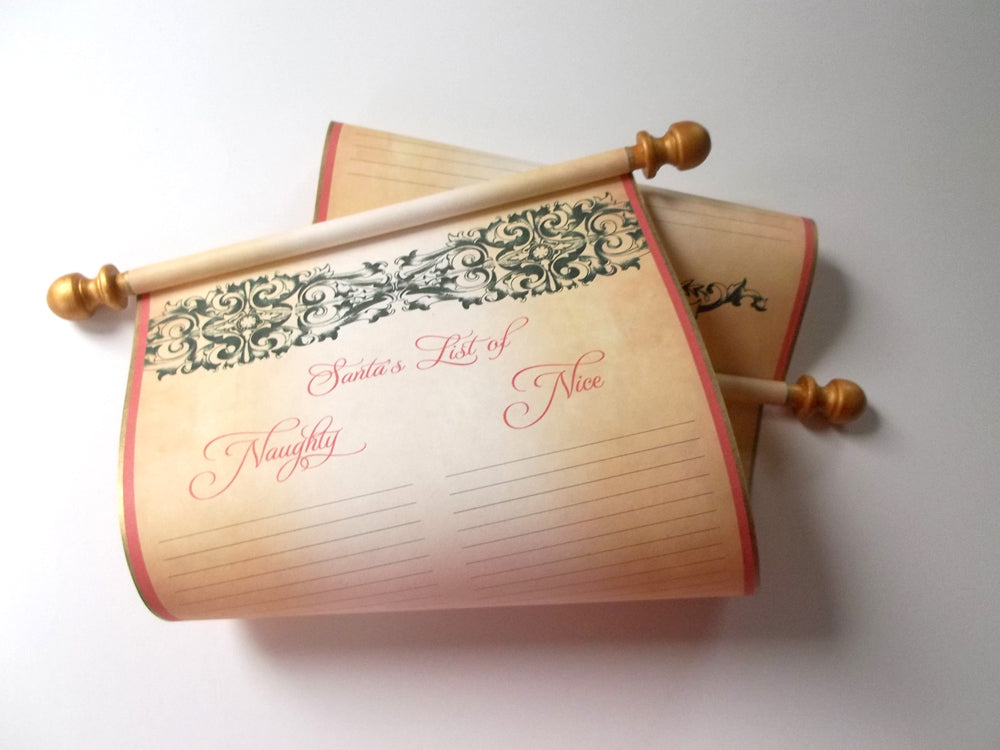 Santa's List of
Naughty Nice